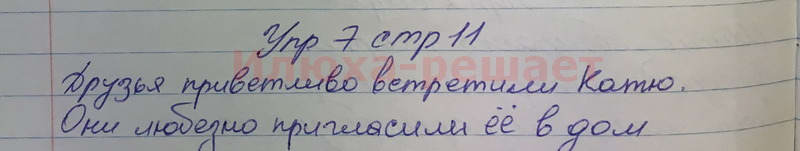 Упр 7 стр 11
Илюха-решает
Друзья приветливо встретили Катю.
Они любезно пригласили её в дом